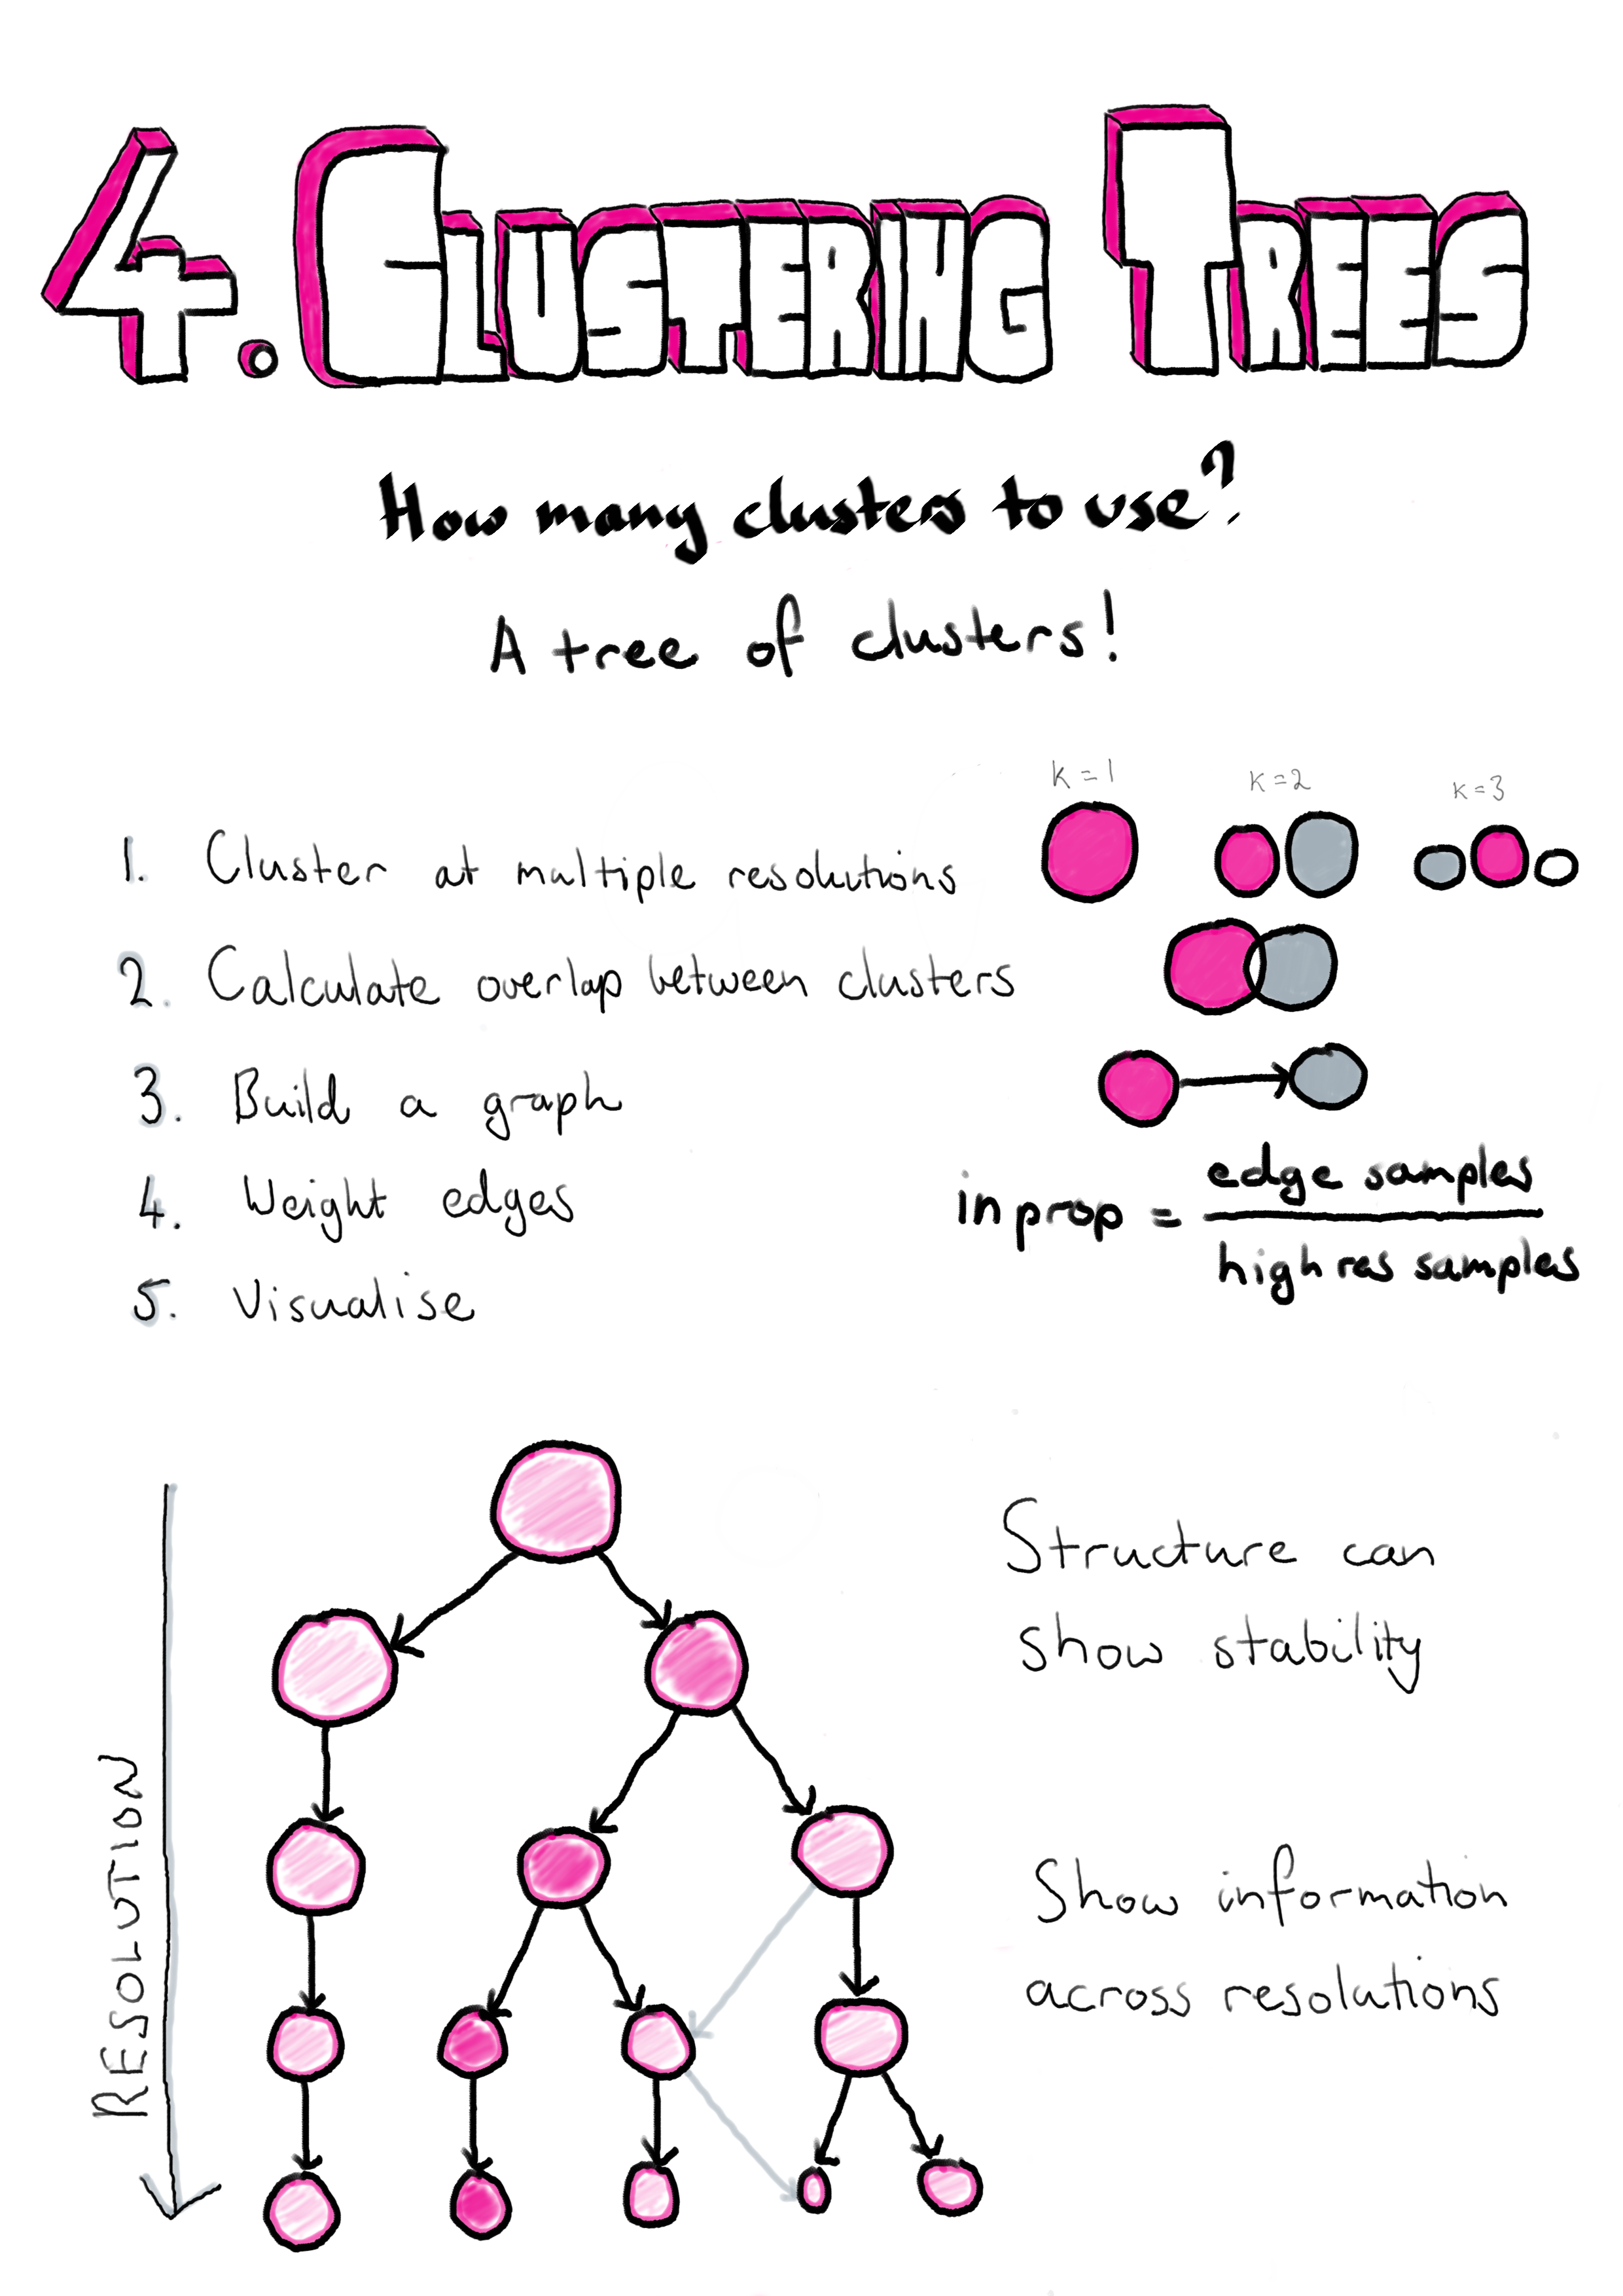 4. CLUSTERING TREES
How many clusters to use?
A tree of clusters!
K = 1
K = 2
K = 3
1. Cluster at multiple resolutions
2. Calculate overlap between clusters
3. Build a graph
4. Weight edges
in prop = edge samples
high res samples
5. Visualise
RESOLUTION
Structure can
show stability
Show information
across resolutions